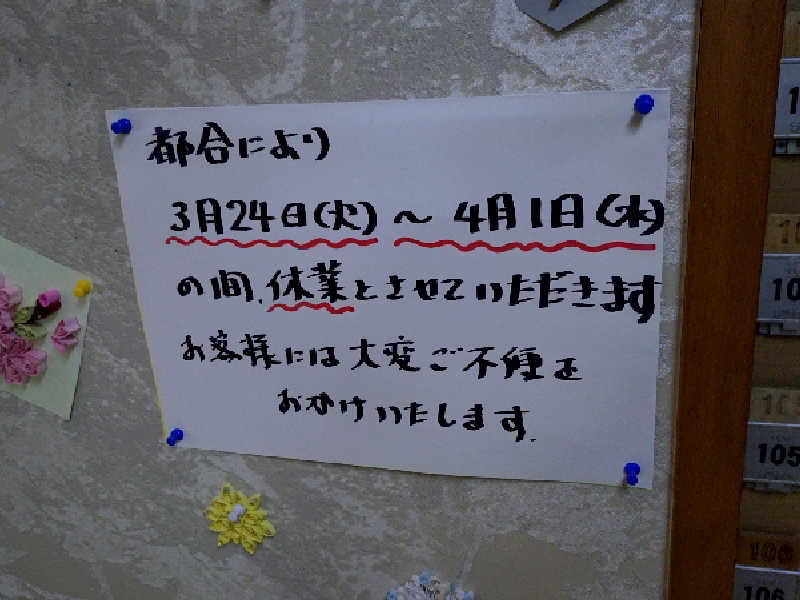 都合により
3月24日(火)~4月1日(水)
の間、休業とさせていただきます
お客様には大変ご不便を
おかけいたします。
10
105
106
106